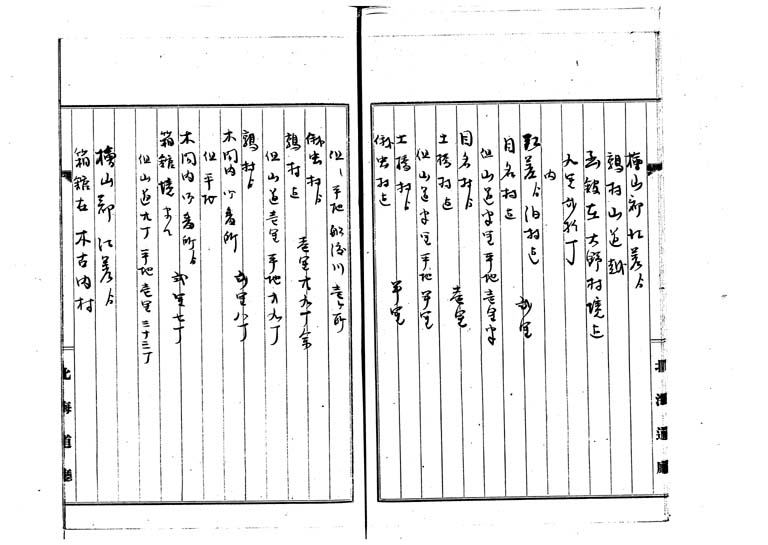 檜山郡江差ゟ
鶉村山道越
函館在大野村境迄
九里弐拾丁
内
江差ゟ泊村迄 弐里
目名村迄
但山道半里平地壱里半
目名村ゟ 壱里
土橋村迄
但山道半里平地半里
土橋村ゟ 半里
俄虫村迄
北海道廳
俄虫村ゟ 壱里
鶉村迄
但山道壱里平地
鶉村ゟ 弐里八丁
木間内御番所
但平地
木間内御番所ゟ 弐里七丁
箱館境
但山道九丁平地壱里三十三丁
檜山郡江差ゟ
箱館在木古内村
北海道廳